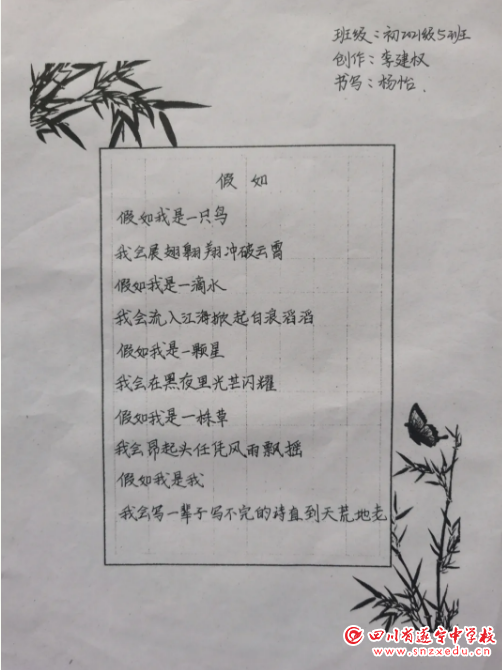 班级：初2021级5班
创作：李建权
书写：杨怡.
假如
假如我是一只鸟
我会展翅翱翔冲破云霄
假如我是一滴水
我会流入江海掀起白浪滔滔
假如我是一颗星
我会在黑夜里光芒闪耀
假如我是一株草
我会昂起头任凭风雨飘摇
假如我是我
我会写一辈子写不完的诗直到天荒地老
四川省遂宁中学校
www.snzxedu.cn